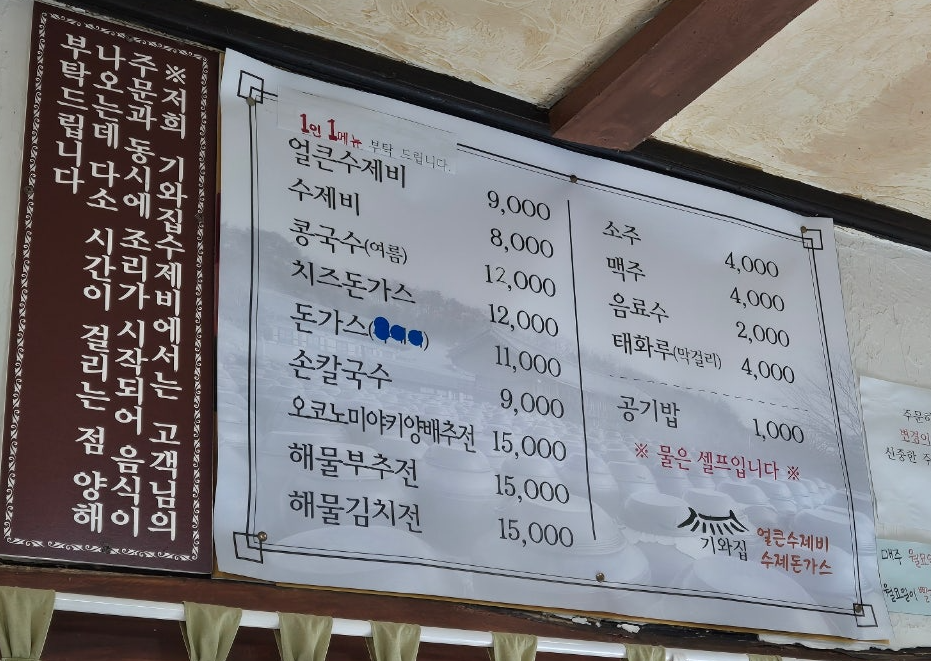 ※저희 기와집수제비에서는 고객님의
주문과 동시에 조리가 시작되어 음식이
나오는데 다소 시간이 걸리는 점 양해
부탁드립니다
1인 1메뉴 부탁 드립니다.
얼큰수제비 9,000
수제비 8,000
콩국수(여름) 12,000
치즈돈가스 12,000
돈가스( ) 11,000
손칼국수 9,000
오코노미야키양배추전 15,000
해물부추전 15,000
해물김치전 15,000
소주 4,000
맥주 4,000
음료수 2,000
태화루(막걸리) 4,000
공기밥 1,000
※ 물은 셀프입니다 ※
기와집
얼큰수제비
수제돈가스
신중한
매주